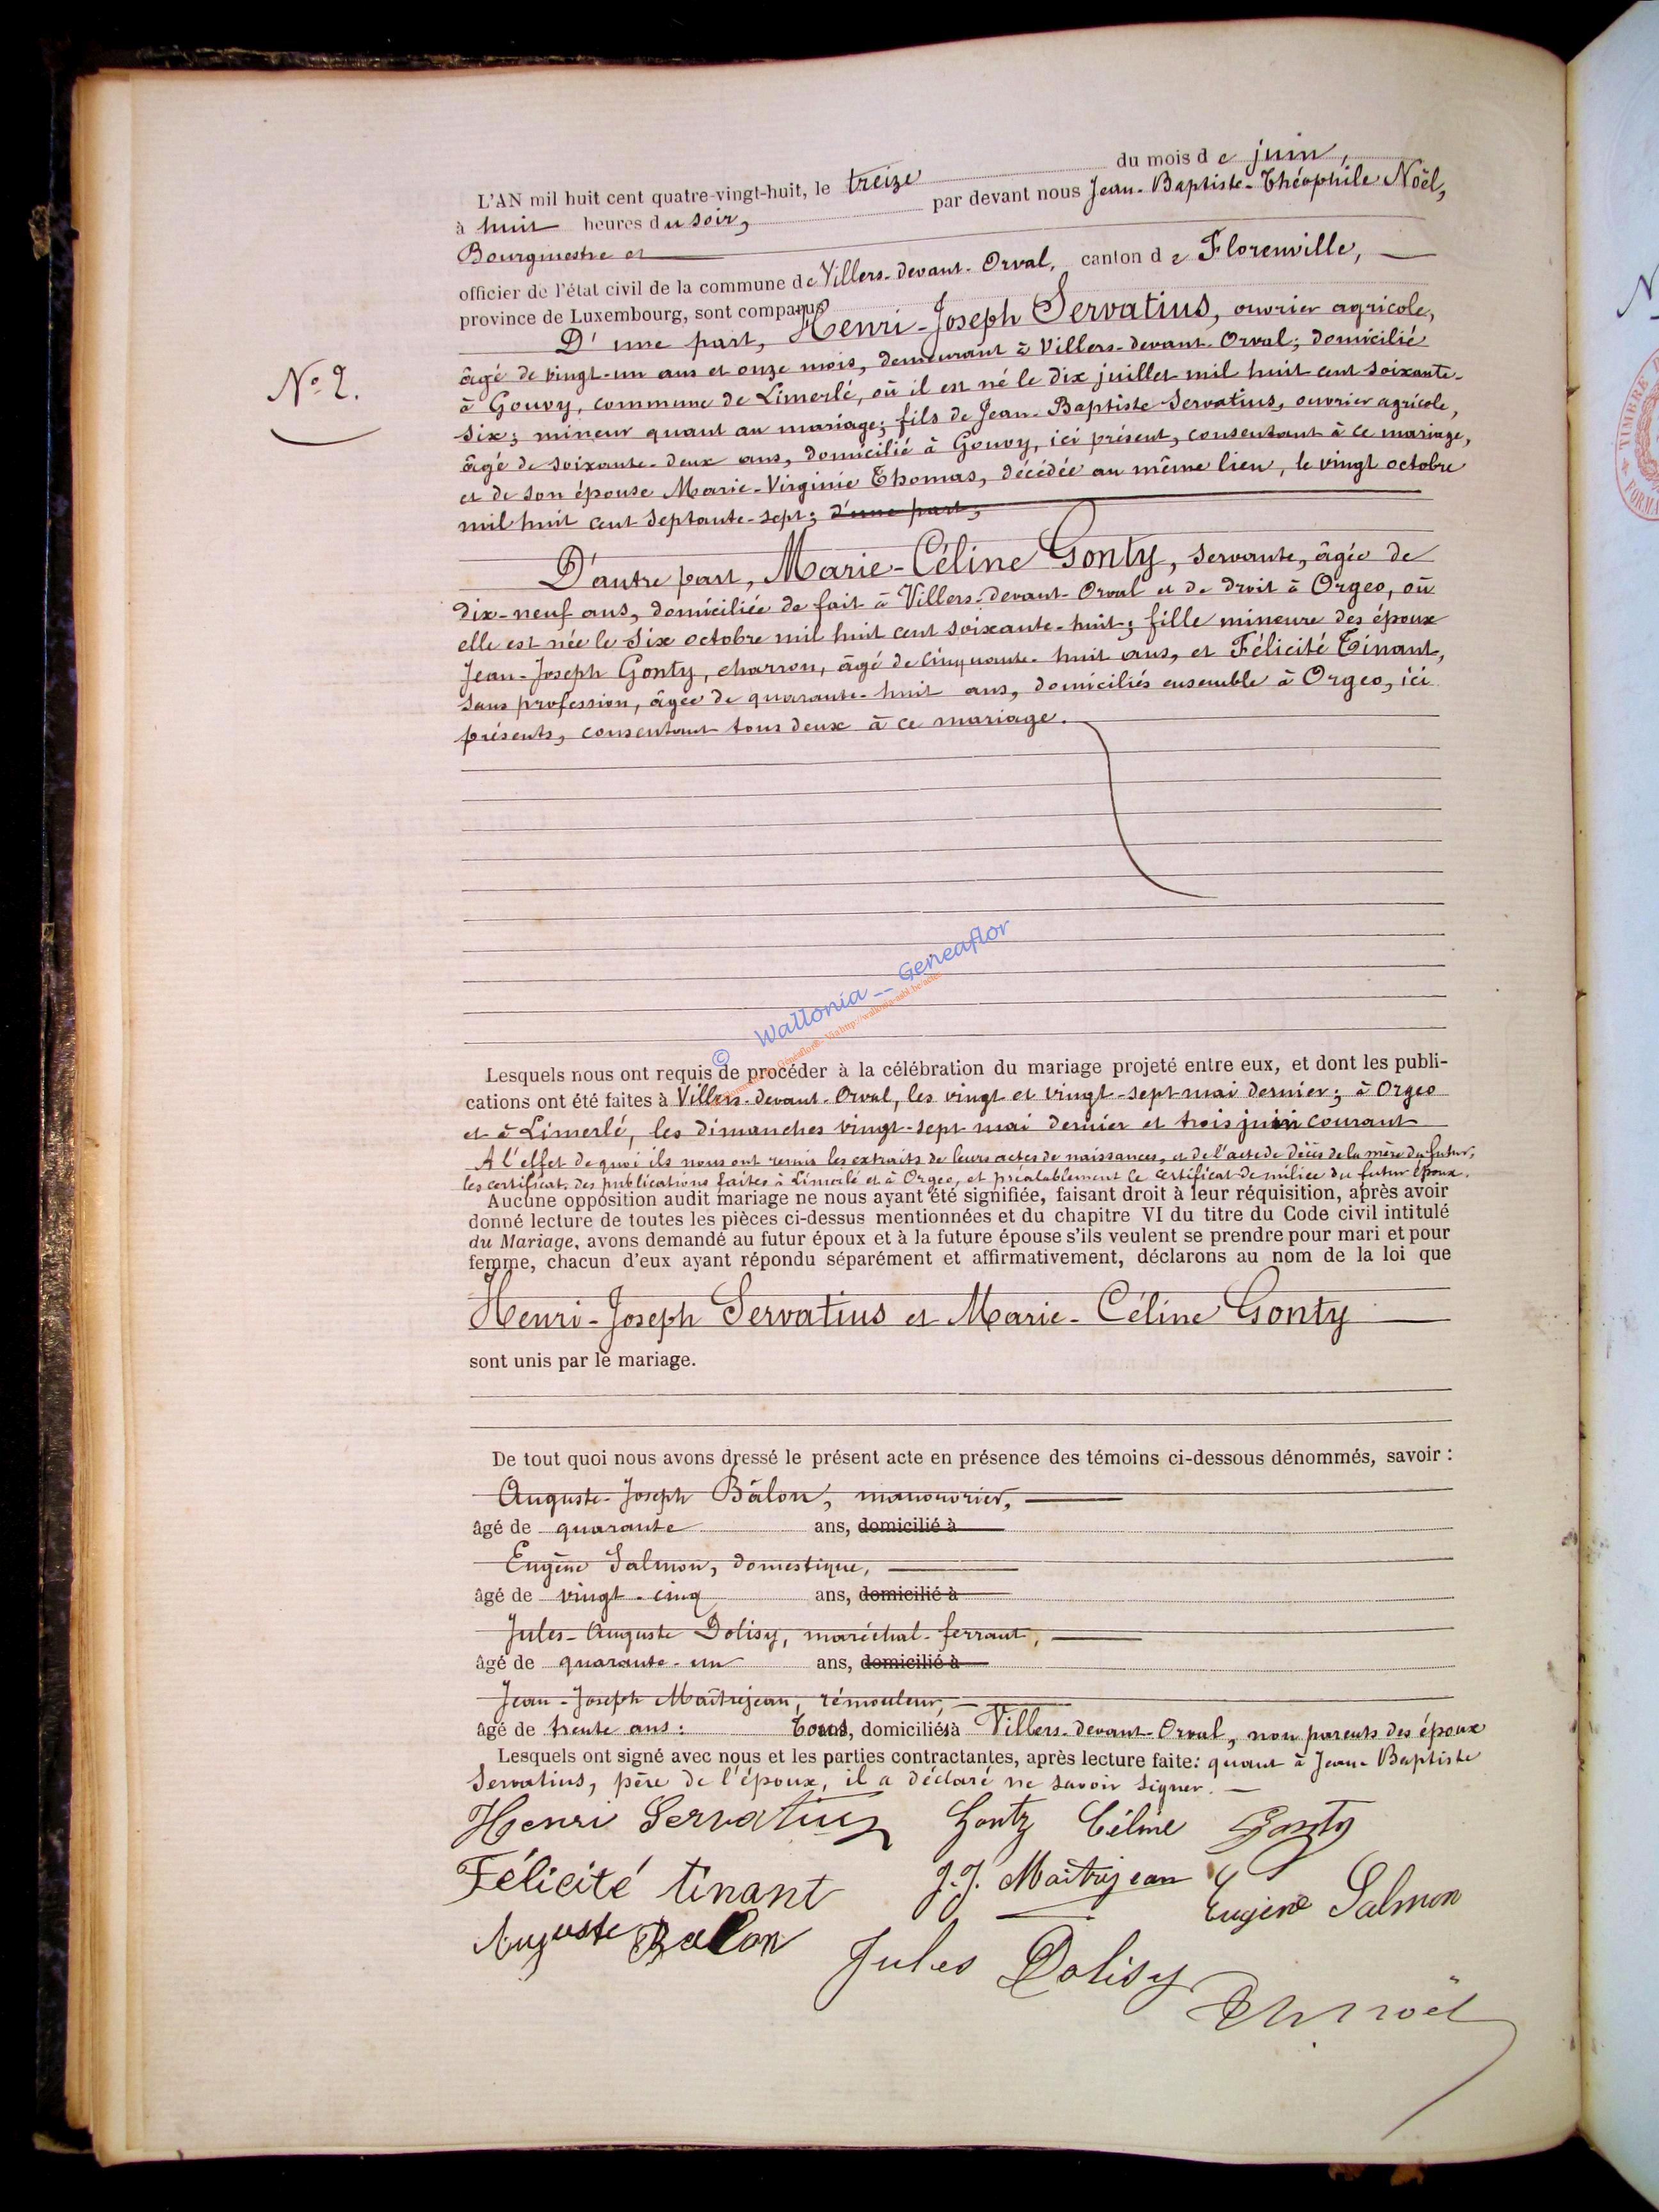 L'AN mil huit cent quatre-vingt-huit, le treize du mois de juin,
à huit heures du soir, par devant nous Jean-Baptiste-Théophile Noël,
Bourgmestre et
officier de l'état civil de la commune de Villers-devant-Orval, canton de Florenville,
province de Luxembourg, sont comparus
D'une part, Henri-Joseph Servatius, ouvrier agricole,
âgé de vingt-un ans et onze mois, demeurant à Villers-devant-Orval; domicilié
à Gouvy, commune de Limerlé, où il est né le dix juillet mil huit cent soixante-
six; mineur quant au mariage; fils de Jean-Baptiste Servatius, ouvrier agricole,
âgé de soixante-deux ans, domicilié à Gouvy, ici présent, consentant à ce mariage,
et de son épouse Marie-Virginie Thomas, décédée au même lieu, le vingt octobre
mil huit cent septante-sept; d'une part,
N° 2.
D'autre part, Marie-Céline Gonty, servante, âgée de
dix-neuf ans, domiciliée de fait à Villers-devant-Orval et de droit à Orgeo, où
elle est née le six octobre mil huit cent soixante-huit; fille mineure des époux
Jean-Joseph Gonty, charron, âgé de cinquante-huit ans, et Félicité Tinant,
sans profession, âgée de quarante-huit ans, domiciliés ensemble à Orgeo, ici
présents, consentant tous deux à ce mariage.
© Wallonia -- Geneaflor
Lesquels nous ont requis de procéder à la célébration du mariage projeté entre eux, et dont les publi-
cations ont été faites à Villers-devant-Orval, les vingt et vingt-sept mai dernier; à Orgeo
et à Limerlé, les dimanches vingt-sept mai dernier et trois juin courant
A l'effet de quoi ils nous ont remis les extraits de leurs actes de naissances, et de l'acte de décès de la mère du futur,
les certificats des publications faites à Limerlé et à Orgeo, et préalablement le certificat de milice du futur époux.
Aucune opposition audit mariage ne nous ayant été signifiée, faisant droit à leur réquisition, après avoir
donné lecture de toutes les pièces ci-dessus mentionnées et du chapitre VI du titre du Code civil intitulé
du Mariage, avons demandé au futur époux et à la future épouse s'ils veulent se prendre pour mari et pour
femme, chacun d'eux ayant répondu séparément et affirmativement, déclarons au nom de la loi que
Henri-Joseph Servatius et Marie-Céline Gonty
sont unis par le mariage.
De tout quoi nous avons dressé le présent acte en présence des témoins ci-dessous dénommés, savoir :
Auguste-Joseph Bâlon, manouvrier,
âgé de quarante ans, domicilié à
Eugène Salmon, domestique,
âgé de vingt-cinq ans, domicilié à
Jules-Auguste Dolisy, maréchal-ferrant,
âgé de quarante-un ans, domicilié à
Jean-Joseph Maîtrejean, rémouleur,
âgé de trente ans: Tous, domiciliés à Villers-devant-Orval, non parents des époux
Lesquels ont signé avec nous et les parties contractantes, après lecture faite: quant à Jean-Baptiste
Servatius, père de l'époux, il a déclaré ne savoir signer.
Henri Servatius Gonty Céline Gonty
Félicité tinant J.J. Maîtrejean Eugène Salmon
Auguste Balon Jules Dolisy
Th Noël